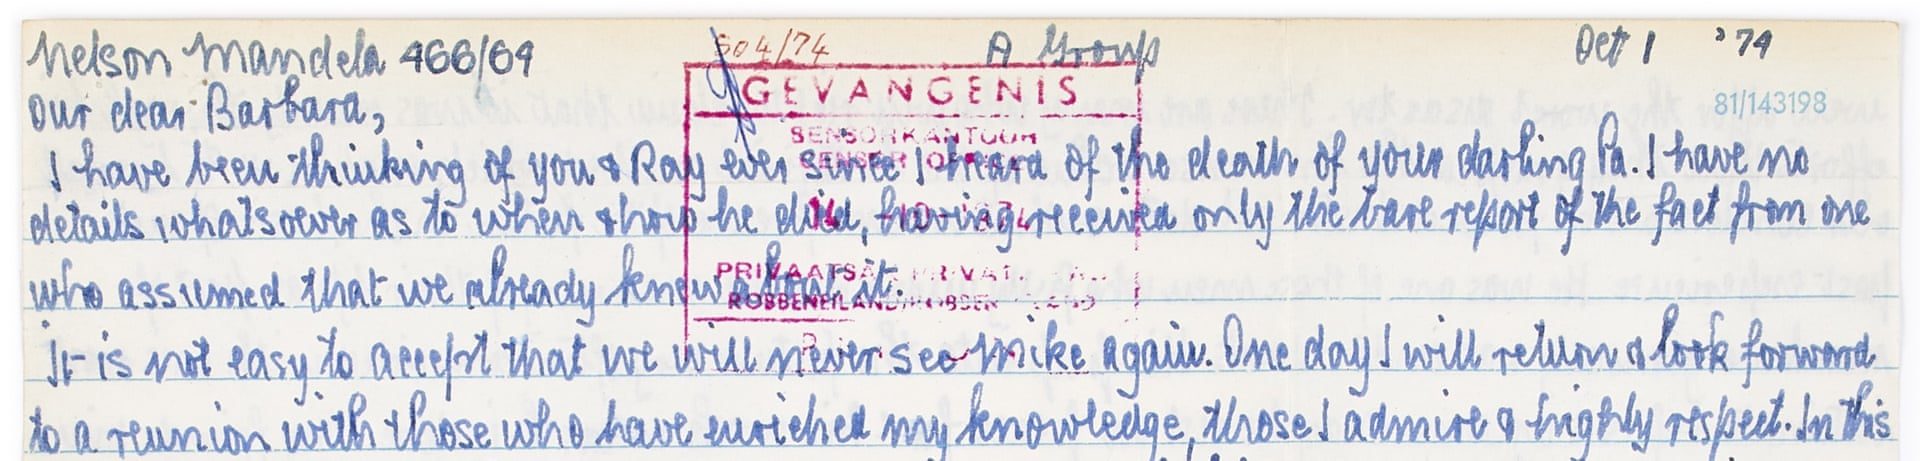 Nelson Mandela 466/64 504/74 A Group Oct 1 '74
GEVANGENIS
81/143198
Our dear Barbara,
SENSORKANTOOR
I have been thinking of you & Ray ever since I heard of the death of your darling Pa. I have no
SENSOR OFFICE
details whatsoever as to when & how he died, having received only the bare report of the fact from one
PRIVAATSAK PRIVATE
who assumed that we already knew about it.
ROBBENEILAND ROBBEN ISLAND
It is not easy to accept that we will never see Mike again. One day I will return & look forward
to a reunion with those who have enriched my knowledge, those I admire & highly respect. In this